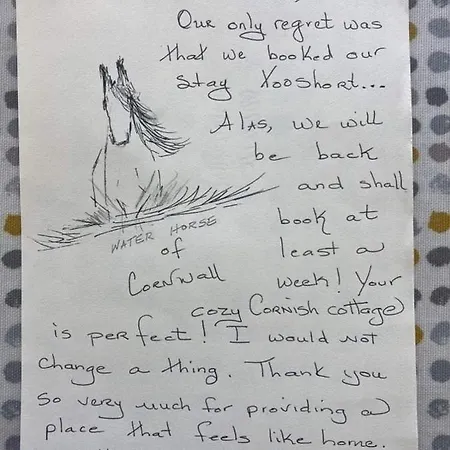 Our only regret was
that we booked our
stay too short...
Alas, we will
be back
and shall
book at
least a
week! Your
cozy Cornish cottage
is perfect! I would not
change a thing. Thank you
so very much for providing a
place that feels like home.
WATER HORSE
of
Cornwall